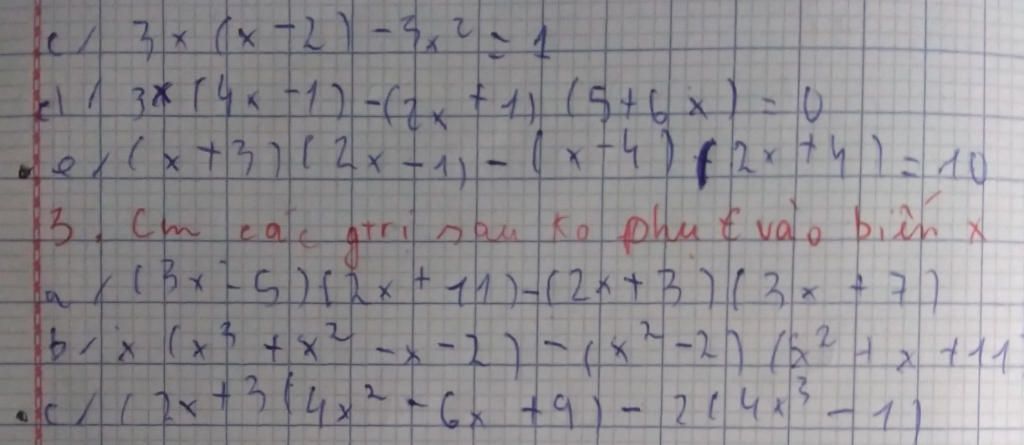 c/ 3x(x-2)-3x² = 1
d/ 3x(4x-1)-(2x+1)(5+6x) = 0
e/ (x+3)(2x-1)-(x-4)(2x+4) = 10
3. Cm các gtrị sau ko phụ t vào biến x
a/ (3x-5)(2x+11)-(2x+3)(3x+7)
b/ x(x³+x²-x-2)-(x²-2)(x²+x+11
c/ (2x+3(4x²-6x+9)-2(4x³-1)